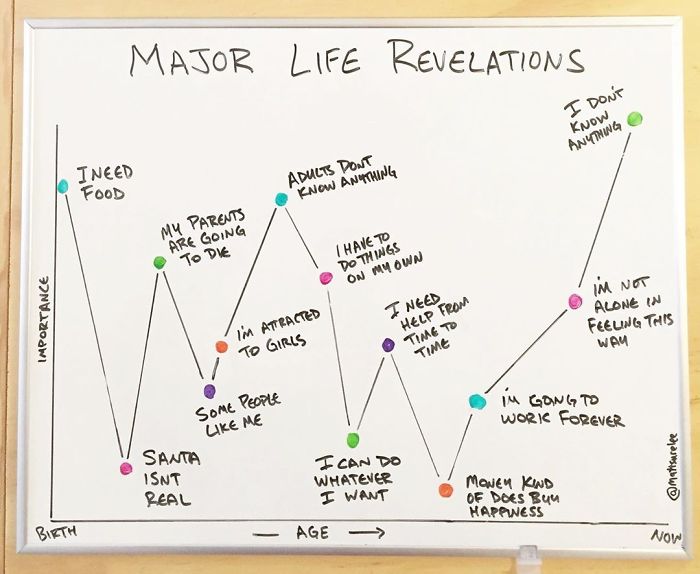 MAJOR LIFE REVELATIONS
I NEED
FOOD
MY PARENTS
ARE GOING
TO DIE
ADULTS DON'T
KNOW ANYTHING
I HAVE TO
DO THINGS
ON MY OWN
I DON'T
KNOW
ANYTHING
I'M ATTRACTED
TO GIRLS
I NEED
HELP FROM
TIME TO
TIME
I'M NOT
ALONE IN
FEELING THIS
WAY
SOME PEOPLE
LIKE ME
I'M GOING TO
WORK FOREVER
SANTA
ISNT
REAL
I CAN DO
WHATEVER
I WANT
MONEY KIND
OF DOES BUY
HAPPINESS
IMPORTANCE
BIRTH
— AGE →
NOW
@mattsurelee